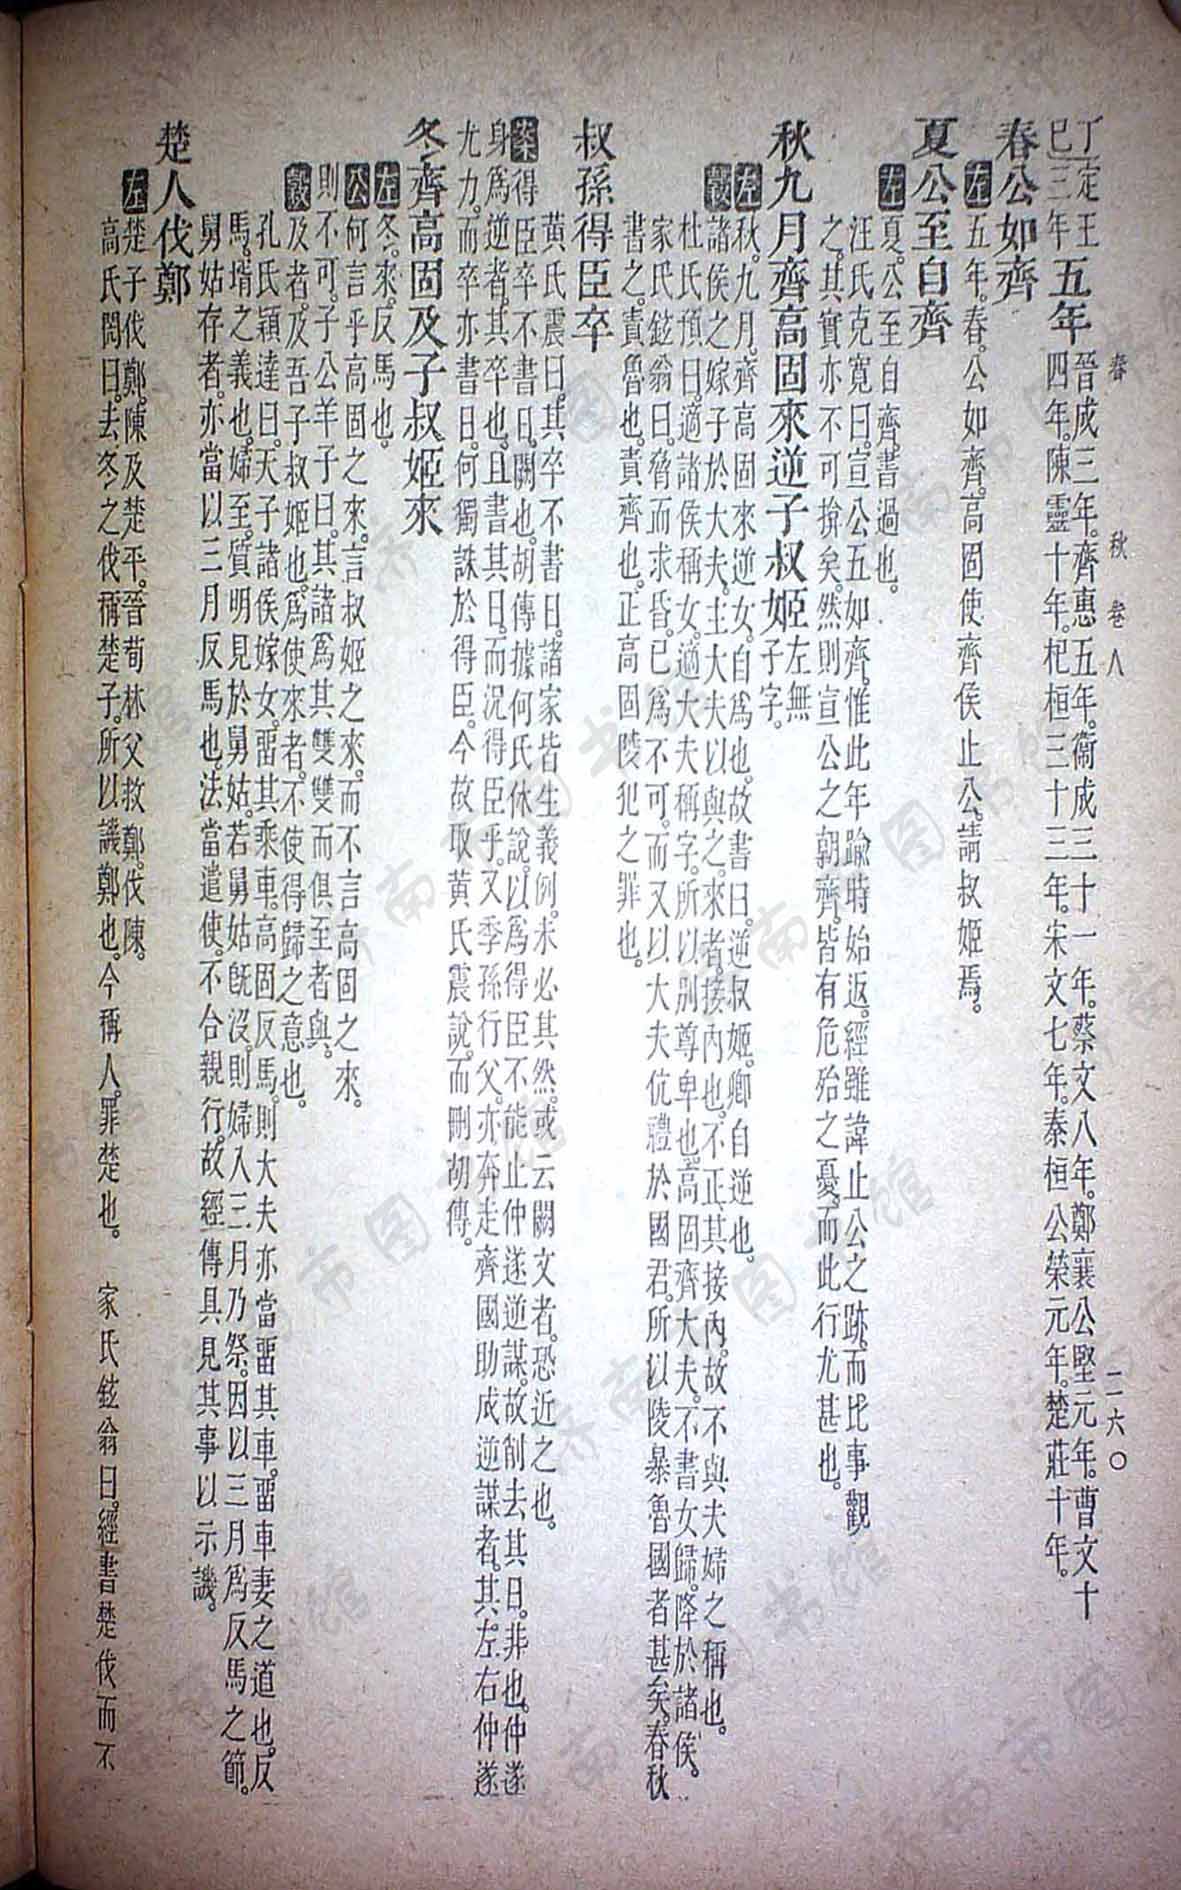 春　秋　卷八　二六〇
丁定王
巳三年
五年
晉成三年。齊惠五年。衞成三十一年。蔡文八年。鄭襄公堅元年。曹文十
四年。陳靈十年。杞桓三十三年。宋文七年。秦桓公榮元年。楚莊十年。
春公如齊
左五年。春。公如齊。高固使齊侯止公。請叔姬焉。
夏公至自齊
左夏。公至自齊。書過也。
汪氏克寬曰。宣公五如齊。惟此年踰時始返。經雖諱止公之跡。而比事觀
之。其實亦不可揜矣。然則宣公之朝齊。皆有危殆之憂。而此行尤甚也。
秋九月齊高固來逆子叔姬左無子字。
左秋。九月。齊高固來逆女。自爲也。故書曰。逆叔姬。卿自逆也。
穀諸侯之嫁子於大夫。主大夫以與之。來者。接內也。不正其接內。故不與夫婦之稱也。
杜氏預曰。適諸侯稱女。適大夫稱字。所以別尊卑也。高固齊大夫。不書女歸。降於諸侯。
家氏鉉翁曰。脅而求昏。已爲不可。而又以大夫伉禮於國君。所以陵暴魯國者甚矣。春秋
書之。責魯也。責齊也。正高固陵犯之罪也。
叔孫得臣卒
黃氏震曰。其卒不書日。諸家皆生義例。未必其然。或云闕文者。恐近之也。
案得臣卒不書日。闕也。胡傳據何氏休說。以爲得臣不能止仲遂逆謀。故削去其日。非也。仲遂
身爲逆者。其卒也。且書其日。而況得臣乎。又季孫行父。亦奔走齊國助成逆謀者。其左右仲遂
尤力。而卒亦書日。何獨誅於得臣。今故取黃氏震說。而刪胡傳。
冬齊高固及子叔姬來
左冬。來。反馬也。
公何言乎高固之來。言叔姬之來。而不言高固之來。
則不可。子公羊子曰。其諸爲其雙雙而俱至者與。
穀及者。及吾子叔姬也。爲使來者。不使得歸之意也。
孔氏穎達曰。天子諸侯嫁女。畱其乘車。高固反馬。則大夫亦當畱其車。畱車妻之道也。反
馬。壻之義也。婦至。質明見於舅姑。若舅姑旣沒。則婦入三月乃祭。因以三月爲反馬之節。
舅姑存者。亦當以三月反馬也。法當遣使。不合親行。故經傳具見其事以示譏。
楚人伐鄭
左楚子伐鄭。陳及楚平。晉荀林父救鄭。伐陳。
高氏閌曰。去冬之伐稱楚子。所以譏鄭也。今稱人。罪楚也。　家氏鉉翁曰。經書楚伐而不